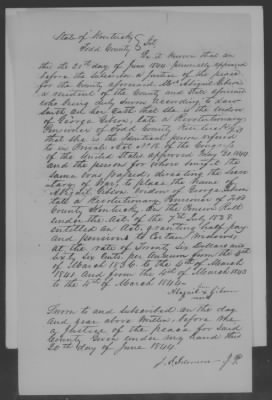 State of Kentucky
Todd County Sct
Be it known that on
this the 20th day of June 1844 personally appeared
before the subscriber a Justice of the peace
for the County aforesaid Mrs Abigail Gibson
a resident of the County and State aforesaid
who being duly sworn according to law
doth on her oath that she is the widow
of George Gibson, late a Revolutionary
Pensioner of Todd County Kentucky
that she is the identical person referred
to in Private Act of the Congress
of the United States approved May
and the person for whose benefit the
same was passed, directing the Secre
tary of War to place the name of
Abigail Gibson widow of George Gibson
late a Revolutionary Pensioner of Todd
County Kentucky, on the Pension Roll
under the Act of the 7th July 1838
entitled an Act, granting half pay
and pensions to certain widows,
at the rate of Twenty Six Dollars and
Sixty Six Cents per Annum from the 4th
of March 1836 to the 4th of March
1841 and from the 4th of March 1843
to the 4th of March 1844
Abigail x Gibson
Sworn to and subscribed on the day
and year above written, before me
a Justice of the peace for said
County Given under my hand this
20th day of June 1844
J. P.